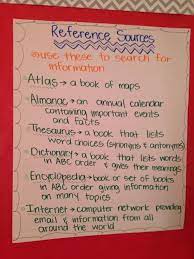 Reference Sources
*use these to search for
information
Atlas → a book of maps
Almanac → an annual calendar
containing important events
and facts
Thesaurus → a book that lists
word choices (synonyms & antonyms)
Dictionary → a book that lists words
in ABC order & gives their meanings
Encyclopedia → book or set of books
in ABC order giving information
on many topics
Internet → computer network providing
email & information from all
around the world